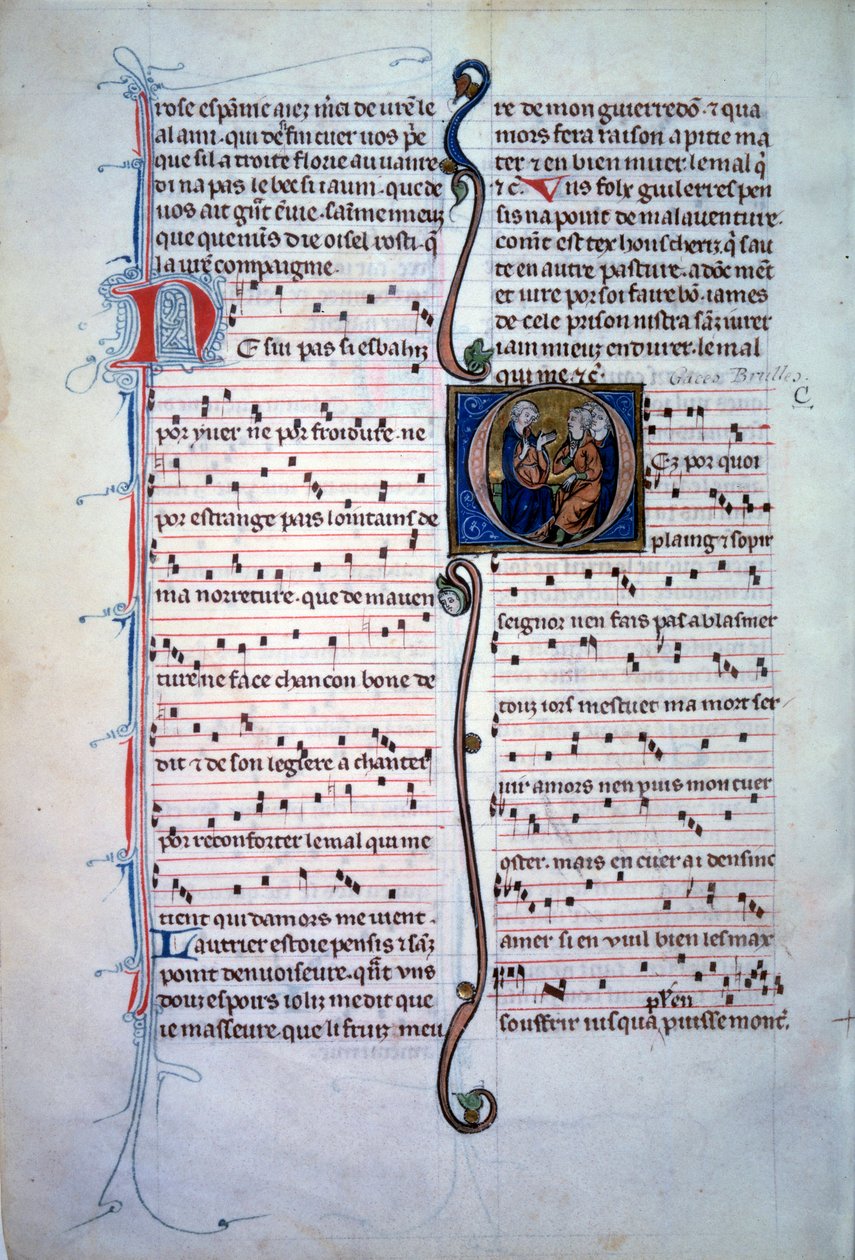 rose espanie aiez m̃ci de ure͂ le
al ami · qui de fin cuer uos p̃e
que sil a troite florie au uaire
di na pas le bec si iaum · que de
uos ait gñt e͂uie · sa͂me mieuz
que que nus die oisel rosti · q̃
la ure͂ compaignie ·
Ne sui pas si esbahiz
por yuer ne por froidure · ne
por estrange pais lointains de
ma norreture · que de mauen
ture ne face chancon bone de
dit ⁊ de son legiere a chanter
por reconforter le mal qui me
tient qui damors me uient ·
Lautrier estoie pensis ⁊ sa͂z
point denuoiseure · qñt uns
douz espoirs ioliz me dit que
ie masseure · que li fruiz meu
re de mon guierredo͂ · ⁊ qua
mors fera raison a pitie ma
ter ⁊ en bien muer · le mal q̃
⁊ c̃ · Vus folx guilerres pen
sis na point de malauenture ·
com̃t est tex hons cheriz · q̃ sau
te en autre pasture · a do͂c me͂t
et uire por soi faire bo͂ · iames
de cele prison nistra sa͂z iurer
iaim mieuz endurer · le mal
qui me · ⁊ c̃ ·
Gaces Brulles ·
C
Ez por quoi
plaing ⁊ sopir
seignor nen fais pas a blasmer
touz iors mestuet ma mort ser
uir amors nen puis mon cuer
oster · mais en cuer ai den sinc
amer si en vuil bien les max
pl̃en
souffrir iusqua puisse mont̃ ·